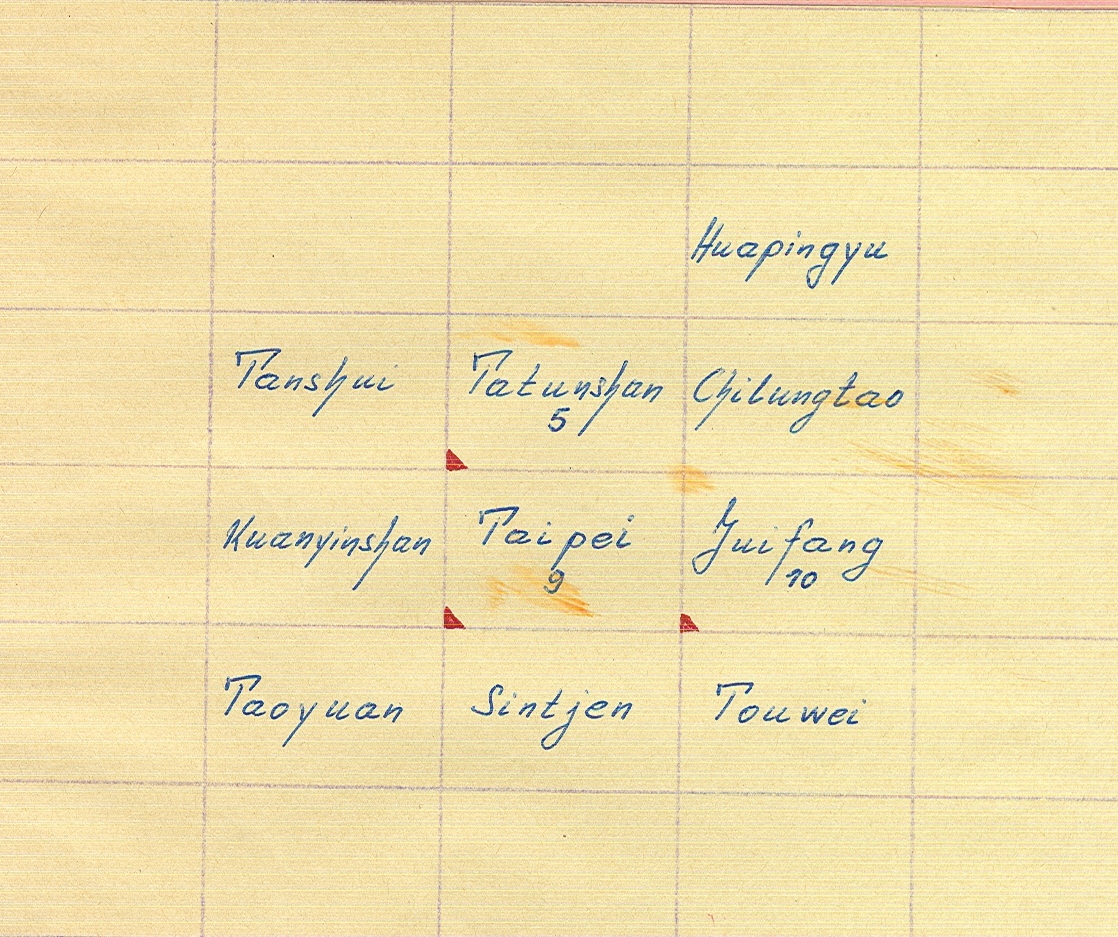 Huapingyu
Tanshui Tatunshan Chilungtao
5
Kuanyinshan Taipei Juifang
9 10
Taoyuan Sintjen Touwei